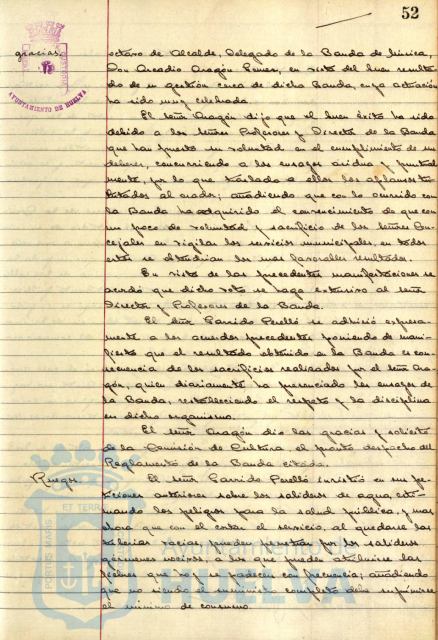 52
gracias.
AYUNTAMIENTO DE HUELVA
octavo de Alcalde, Delegado de la Banda de Música,
Don Arcadio Aragón Gómez, en vista del buen resulta-
do de su gestión cerca de dicha Banda, cuya actuación
ha sido muy celebrada.
El señor Aragón dijo que el buen éxito ha sido
debido a los señores Profesores y Director de la Banda
que han puesto su voluntad en el cumplimiento de sus
deberes, concurriendo a los ensayos asidua y puntual-
mente, por lo que traslada a ellos los aplausos tri-
butados al orador; añadiendo que con lo ocurrido con
la Banda ha adquirido el convencimiento de que con
un poco de voluntad y sacrificio de los señores Con-
cejales en vigilar los servicios municipales, en todos
estos se obtendrían los mas favorables resultados.
En vista de las precedentes manifestaciones se
acordó que dicho voto se haga extensivo al señor
Director y Profesores de la Banda.
El señor Garrido Perelló se adhirió expresa-
mente a los acuerdos precedentes poniendo de mani-
fiesto que el resultado obtenido en la Banda es con-
secuencia de los sacrificios realizados por el señor Ara-
gón, quien diariamente ha presenciado los ensayos de
la Banda, restableciendo el respeto y la disciplina
en dicho organismo.
El señor Aragón dio las gracias y solicitó
de la Comisión de Cultura, el pronto despacho del
Reglamento de la Banda citada.
Ruegos.
El señor Garrido Perelló insistió en sus pe-
ticiones anteriores sobre los salideros de agua, esti-
mando los peligros para la salud pública, y mas
ahora que con el cortar el servicio, al quedarse las
tuberías vacías, pueden penetrar por los salideros
gérmenes nocivos, a los que puede atribuirse las
fiebres que hoy se padecen con frecuencia; añadiendo
que no siendo el suministro completo debe suprimirse
el mínimo de consumo.
PORTUS MARIS
ET TERRAE
Ayuntamiento de
HUELVA